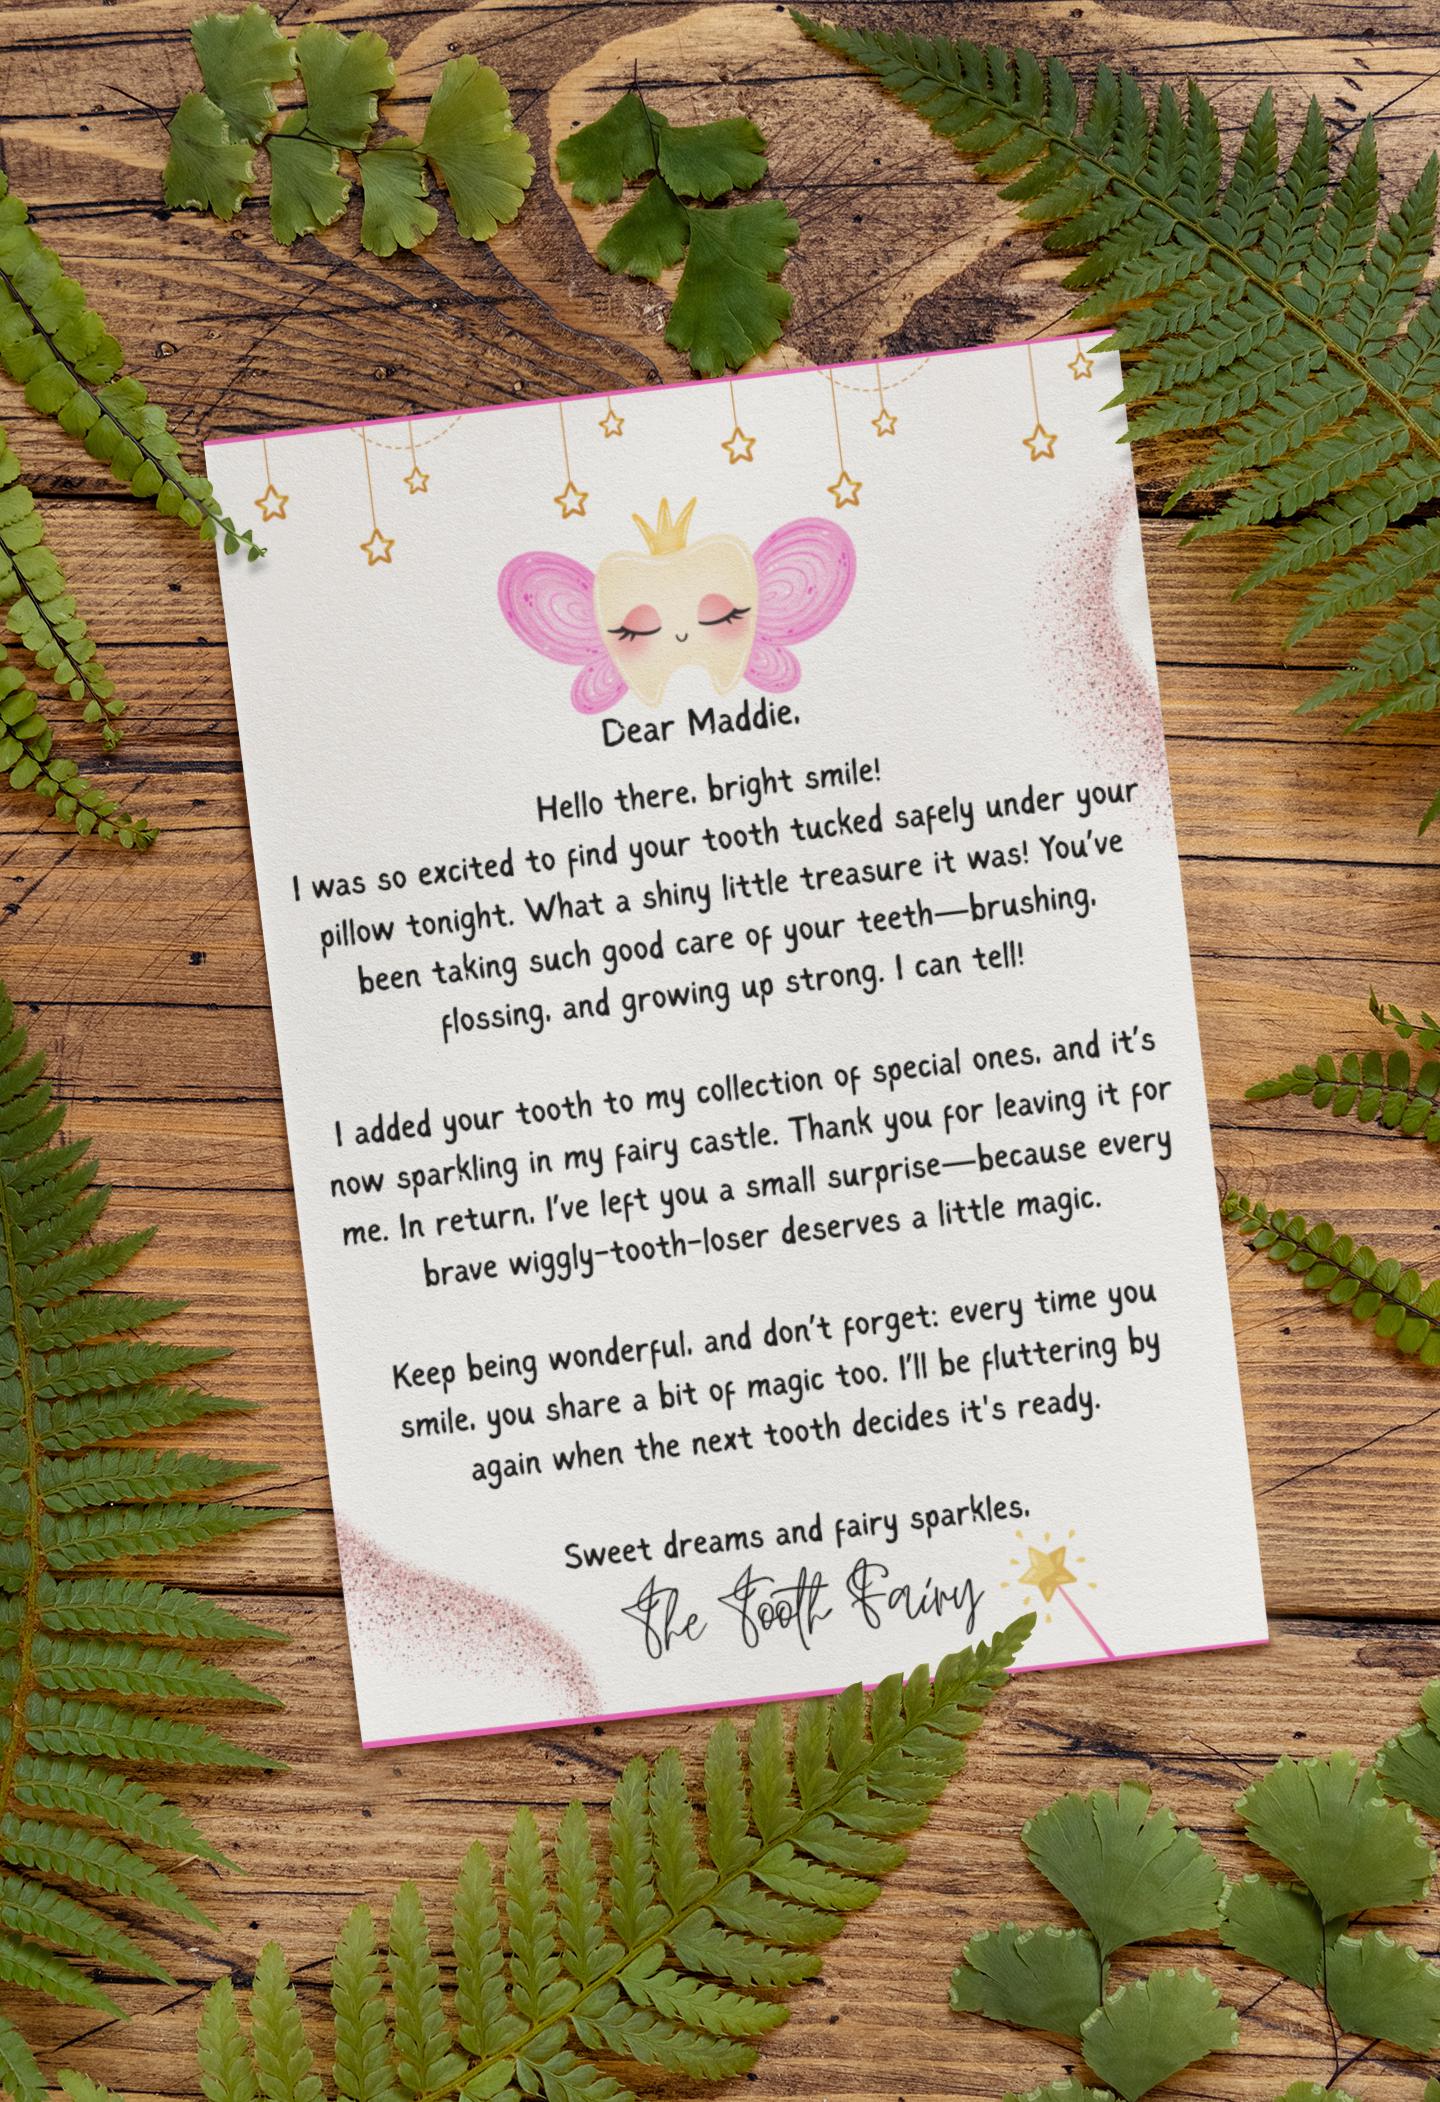 Dear Maddie,
Hello there, bright smile!
I was so excited to find your tooth tucked safely under your
pillow tonight. What a shiny little treasure it was! You've
been taking such good care of your teeth—brushing,
flossing, and growing up strong. I can tell!
I added your tooth to my collection of special ones, and it's
now sparkling in my fairy castle. Thank you for leaving it for
me. In return, I've left you a small surprise—because every
brave wiggly-tooth-loser deserves a little magic.
Keep being wonderful, and don't forget: every time you
smile, you share a bit of magic too. I'll be fluttering by
again when the next tooth decides it's ready.
Sweet dreams and fairy sparkles,
The Tooth Fairy